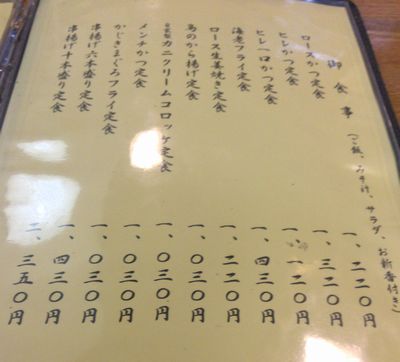 御食事(ご飯、みそ汁、サラダ、お新香付き)
ロースかつ定食 一、二二〇円
ヒレかつ定食 一、三二〇円
ヒレ一口かつ定食 一、一二〇円
海老フライ定食 一、四三〇円
ロース生姜焼き定食 一、二二〇円
鳥のから揚げ定食 一、〇三〇円
自家製カニクリームコロッケ定食 一、〇三〇円
メンチかつ定食 一、〇三〇円
かじきまぐろフライ定食 一、〇三〇円
串揚げ六本盛り定食 一、四三〇円
串揚げ十本盛り定食 二、三五〇円